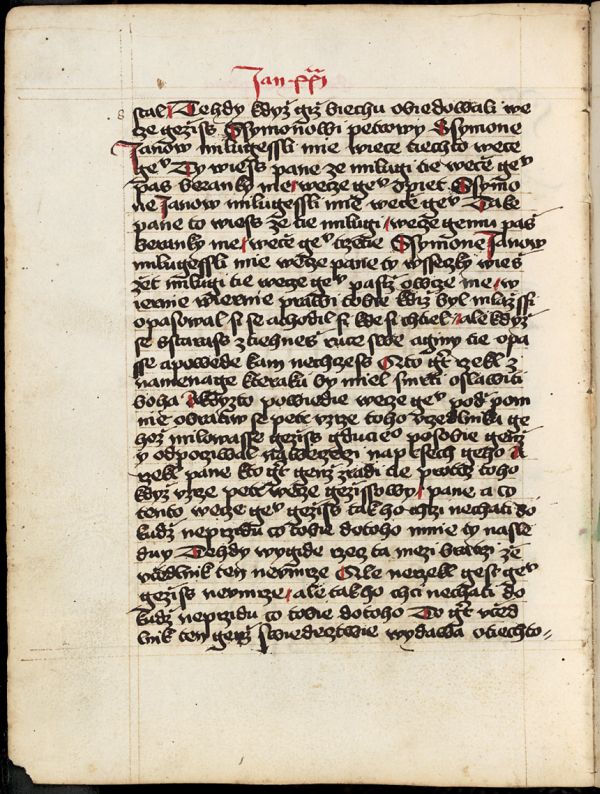 Jan · xxi
stal Tehdy když giž biechu obiedowali we
ze gežiss Ssymonowi petrowy Ssymone
Janow milugessli mie wiece tiechto wece
geᵘ Ty wiess pane ze milugi tie wece geᵘ
pas beranky me wecze geᵘ opiet Ssymo
ne Janow milugessli mie wece geᵘ Take
pane to wiess ze tie milugi wecze gemu pas
beranky me wece geᵘ trzetie Ssymone Janow
milugessli mie wecze pane ty wsseczky wies
žet milugi tie wecze geᵘ pasiž owcze me w
iernie wiernie prawi tobie kdiž byl mlažssi
opasowal si se achodil si kdesi chtiel ale když
se sstarass ztiehnes ruce swe aginy tie opa
sse apowede kam nechzess Ato gᵗ rzekl z
namenage kteraku by miel smrti oslawiti
boha Akdyzto powiedie wecze geᵘ poď po
mnie obratiw se petr vzrze toho vczedlnika ge
hož milowasse gežiss gducieᵒ po sobie genž
y odpocziwal na weczerzi na prsech geho A
rzekl pane kto gᵗ genž zradi tie protož toho
když vzrze petr wecze gezissowy pane a co
tento wecze geᵘ gežiss tak ho chzi nechati do
kudž neprzidu co tobie dotoho mnie ty nasle
duy Tehdy wygide rzecz ta mezi bratrzi že
vczedlnik ten nevmrze Ale nerzekl gest geᵘ
gežiss nevmrze ale tak ho chci nechati do
kudž neprzidu co tobie dotoho To gᵗ vczed
lnik ten genž swiedecztwie wydawa otiechto